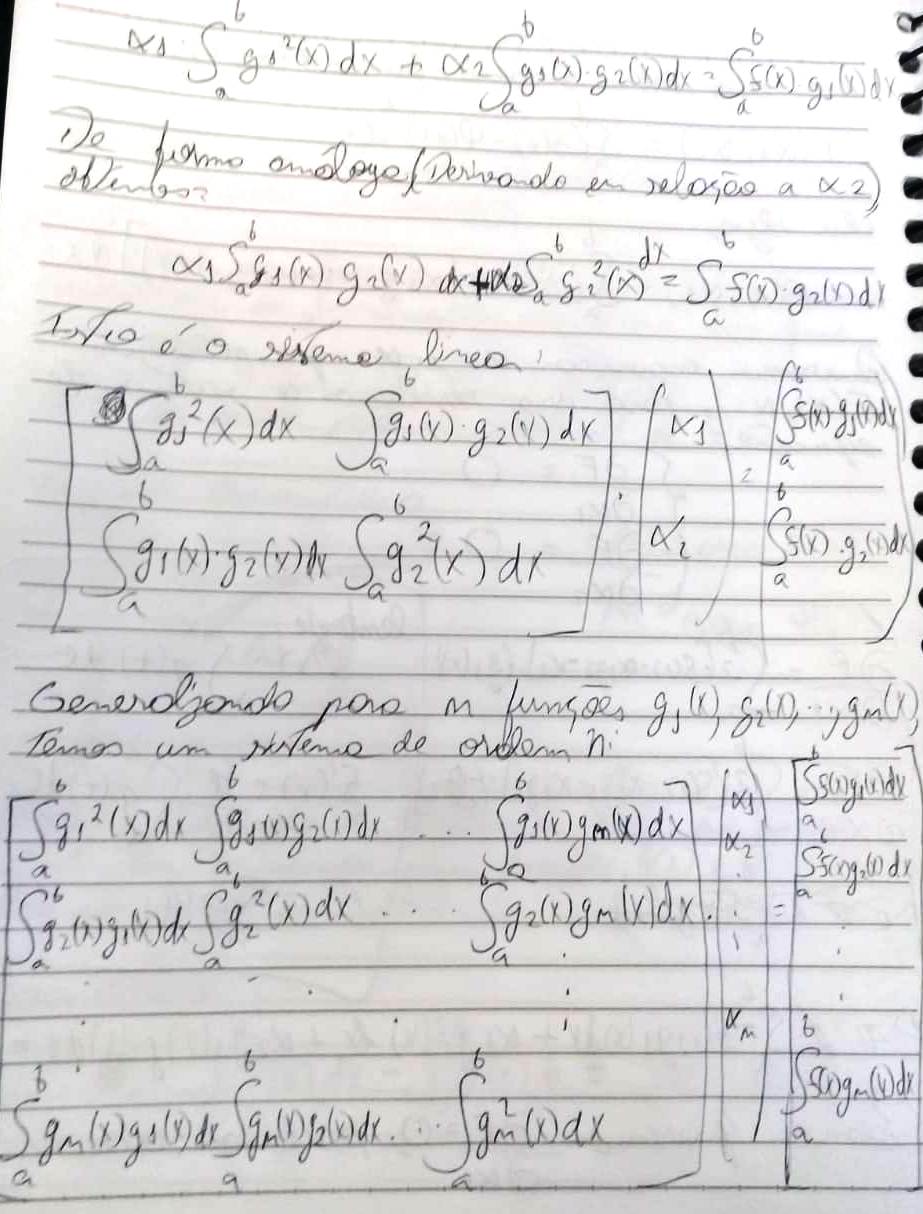 α1 · ∫_a^b g1²(x) dx + α2 ∫_a^b g1(x) · g2(x) dx = ∫_a^b f(x) g1(x) dx
De forma análoga (Derivando em relação a α2)
obtemos:
α1 ∫_a^b g1(x) g2(x) dx + α2 ∫_a^b g2²(x) dx = ∫_a^b f(x) · g2(x) dx
Isto é o sistema linea
[ ∫_a^b g1²(x) dx   ∫_a^b g1(x) · g2(x) dx ] · ( α1 ) = ( ∫_a^b f(x) g1(x) dx )
[ ∫_a^b g1(x) · g2(x) dx   ∫_a^b g2²(x) dx ]   ( α2 )   ( ∫_a^b f(x) · g2(x) dx )
Generalizando para n funções g1(x), g2(x), ..., gn(x),
Temos um sistema de ordem n:
[ ∫_a^b g1²(x) dx   ∫_a^b g1(x) g2(x) dx   . . .   ∫_a^b g1(x) gn(x) dx ]   ( α1 )   [ ∫_a^b f(x) g1(x) dx ]
[ ∫_a^b g2(x) g1(x) dx   ∫_a^b g2²(x) dx . . . ∫_a^b g2(x) gn(x) dx ] · ( α2 ) = [ ∫_a^b f(x) g2(x) dx ]
. . . . .
[ ∫_a^b gn(x) g1(x) dx   ∫_a^b gn(x) g2(x) dx . . . ∫_a^b gn²(x) dx ]   ( αn )   [ ∫_a^b f(x) gn(x) dx ]